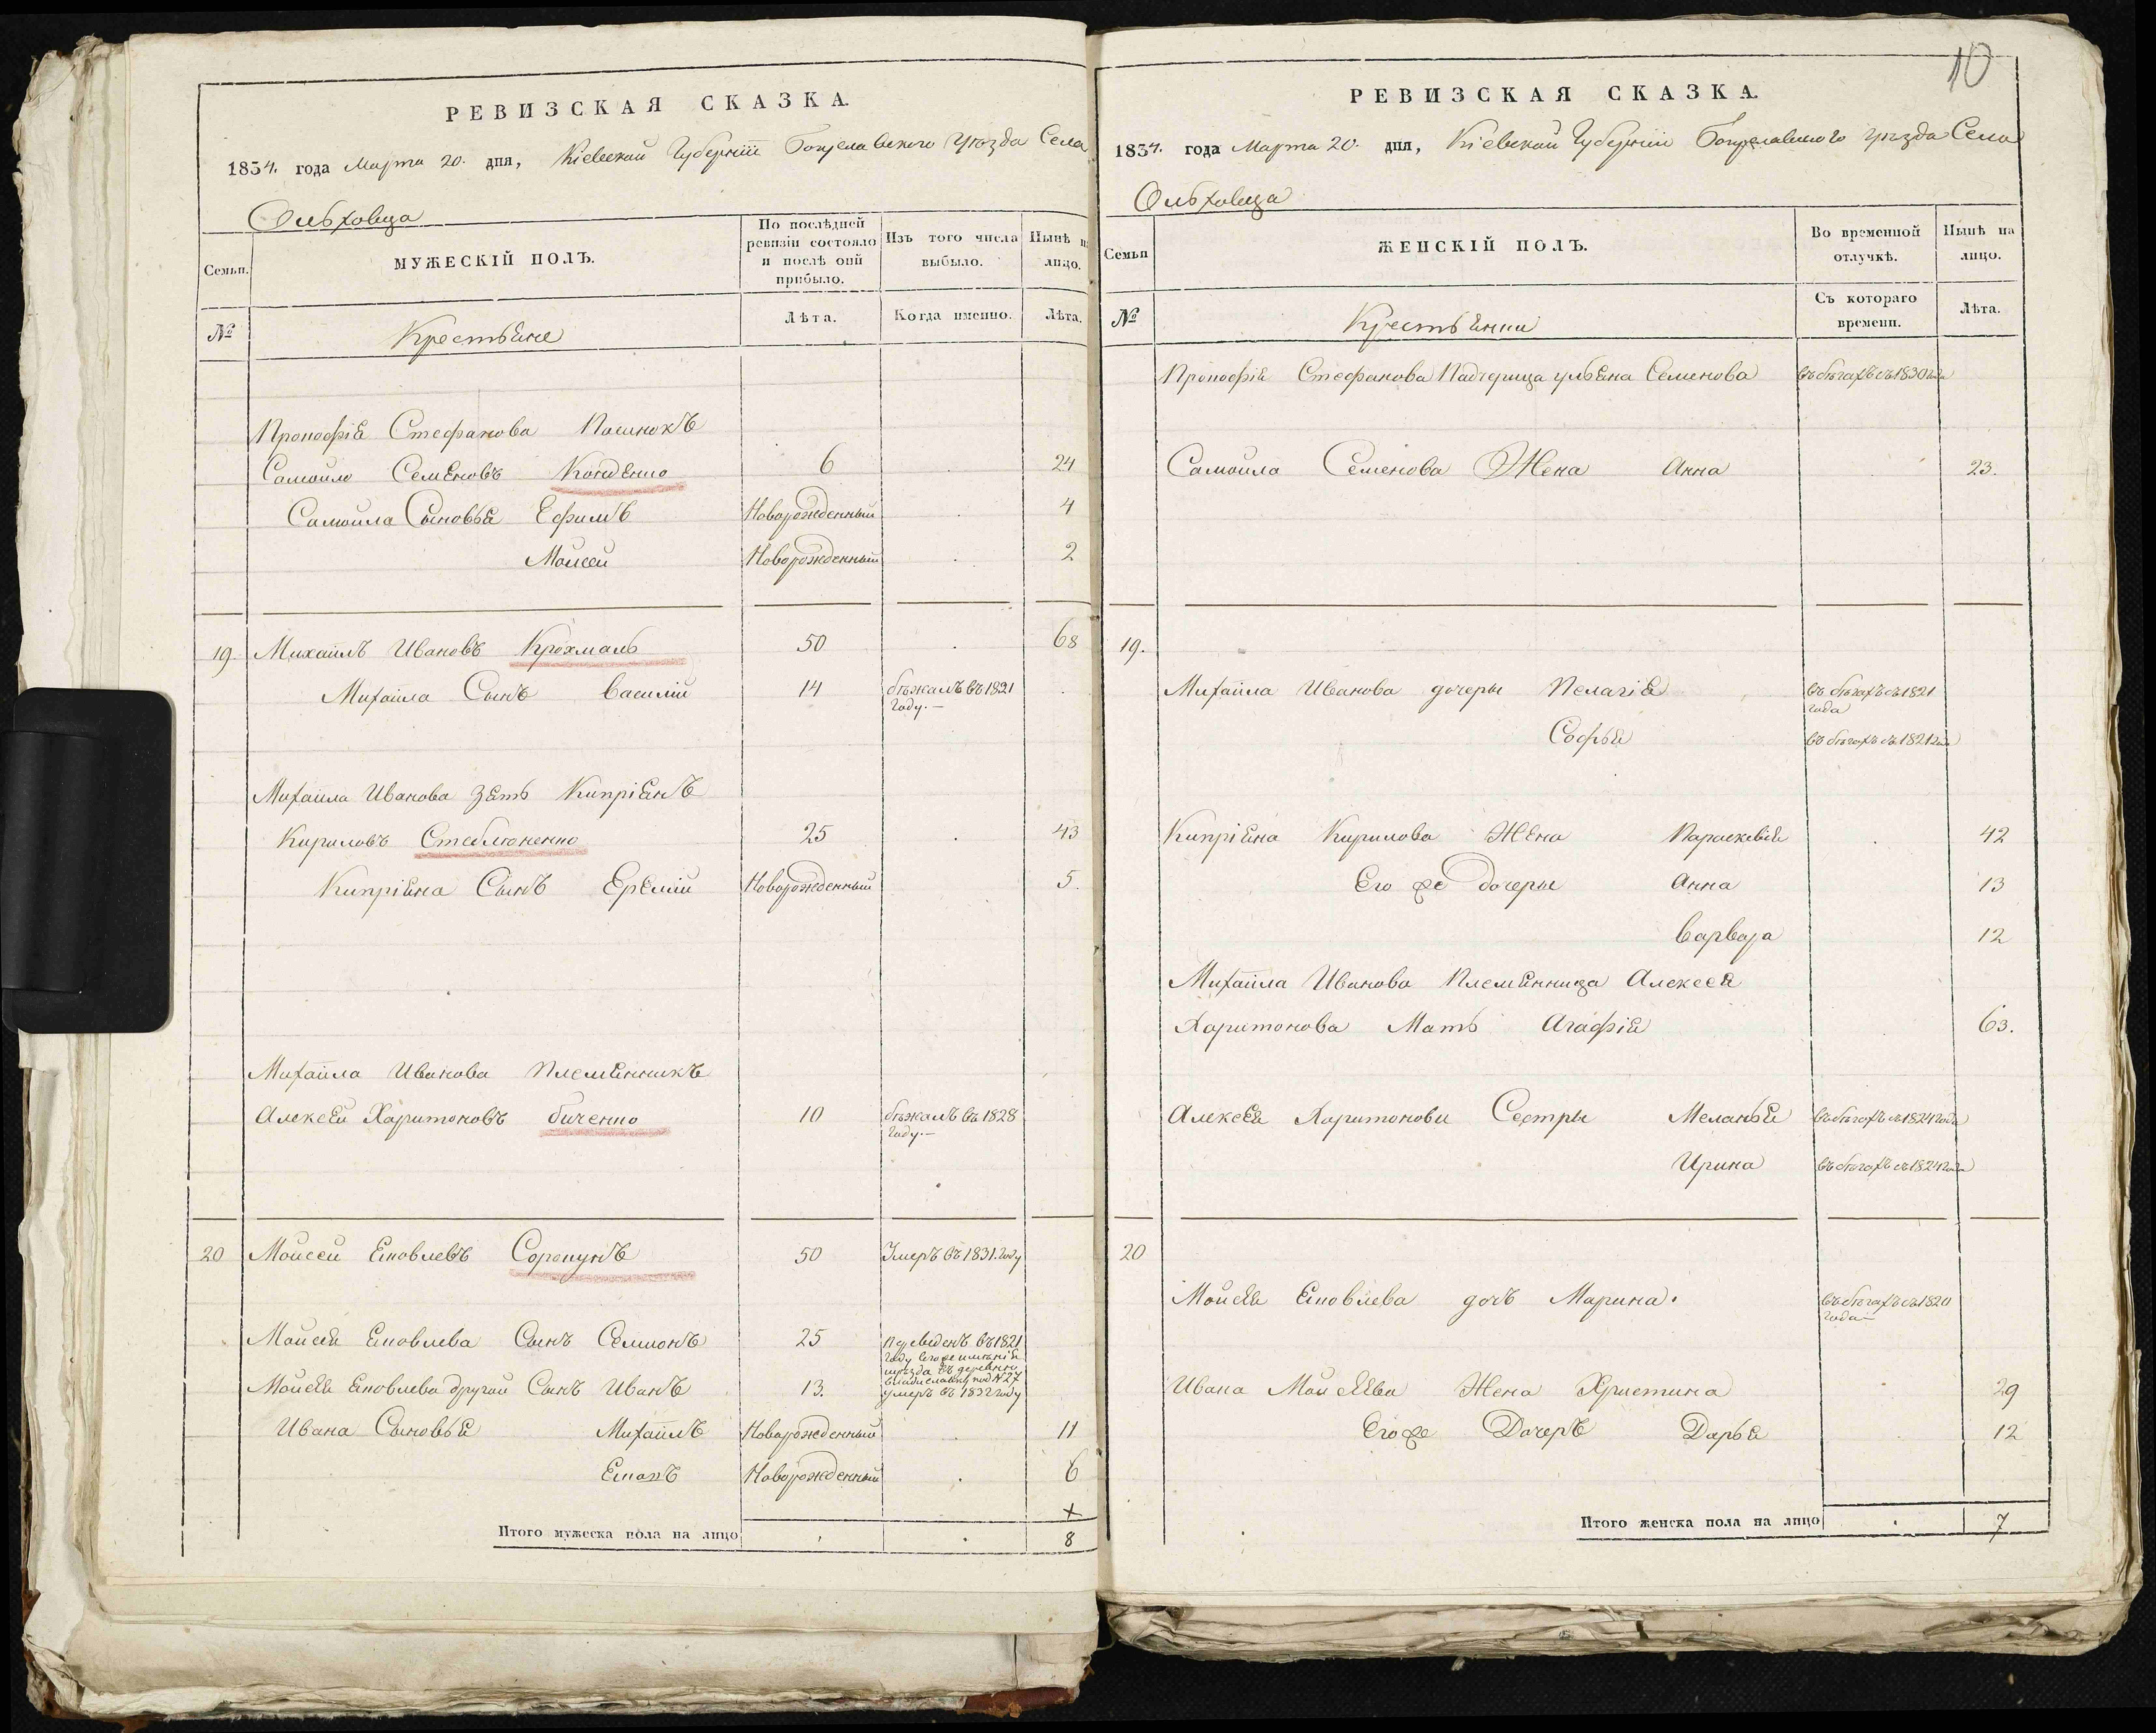 РЕВИЗСКАЯ СКАЗКА.
1834. года Марта 20. дня, Кіевской Губерніи Богуславского Уѣзда Села
Ольховца
Семьи.
МУЖЕСКІЙ ПОЛЪ.
По послѣдней ревизіи состояло и послѣ оній прибыло.
Изъ того числа выбыло.
Нынѣ н лицо.
№
Крестьяне
Лѣта.
Когда именно.
Лѣта.
Прокофія Стефанова Пасинокъ
Самойло Семеновъ 6 24
Самойла Сыновья Ефимъ Новорожденный 4
Мойсей Новорожденный 2
19. Михайлъ Ивановъ Крохмаль 50 68
Михайла Сынъ Василій 14 бѣжалъ въ 1821
году.
Михайла Иванова Зять Кипріянъ
Кириловъ Стеблюненко 25 43
Кипріяна Сынъ Еремій Новорожденный 5.
Михайла Иванова Племянникъ
Алексей Харитоновъ Биченко 10 бѣжалъ въ 1828
году.
20 Мойсей Яковлевъ Сорокунъ 50 Умеръ въ 1831. году
Мойсея Яковлева Сынъ Семионъ 25 Переведенъ въ 1821
году того же имѣнія
уѣзда въ деревню
под № 27
Мойсея Яковлева другой Сынъ Иванъ 13. умеръ въ 1832 году
Ивана Сыновья Михайлъ Новорожденный 11
Новорожденный 6
×
Итого мужеска пола на лицо 8
10
РЕВИЗСКАЯ СКАЗКА.
1834. года Марта 20. дня, Кіевской Губерніи Богуславского уѣзда Села
Ольховца
Семьи
ЖЕНСКІЙ ПОЛЪ.
Во временной отлучкѣ.
Нынѣ на лицо.
№
Крестьянки
Съ котораго времени.
Лѣта.
Прокофія Стефанова Падчерица Ульяна Семенова въ бѣгахъ съ 1830 года
Самойла Семенова Жена Анна 23.
19.
Михайла Иванова дочеры Пелагія въ бѣгахъ съ 1821
года
Софья въ бѣгахъ съ 1821 года
Кипріяна Кирилова Жена Параскевія 42
Его же дочеры Анна 13
Варвара 12
Михайла Иванова Племянница Алексея
Харитонова Мать Агафія 63.
Алексея Харитонови Сестры Меланья въ бѣгахъ съ 1824 года
Ирина въ бѣгахъ съ 1824 года
20
Мойсея Яковлева дочъ Марина. въ бѣгахъ съ 1820
года
Ивана Мойсеева Жена Христина 29
Его же Дочеръ Дарья 12
Итого женска пола на лицо 7